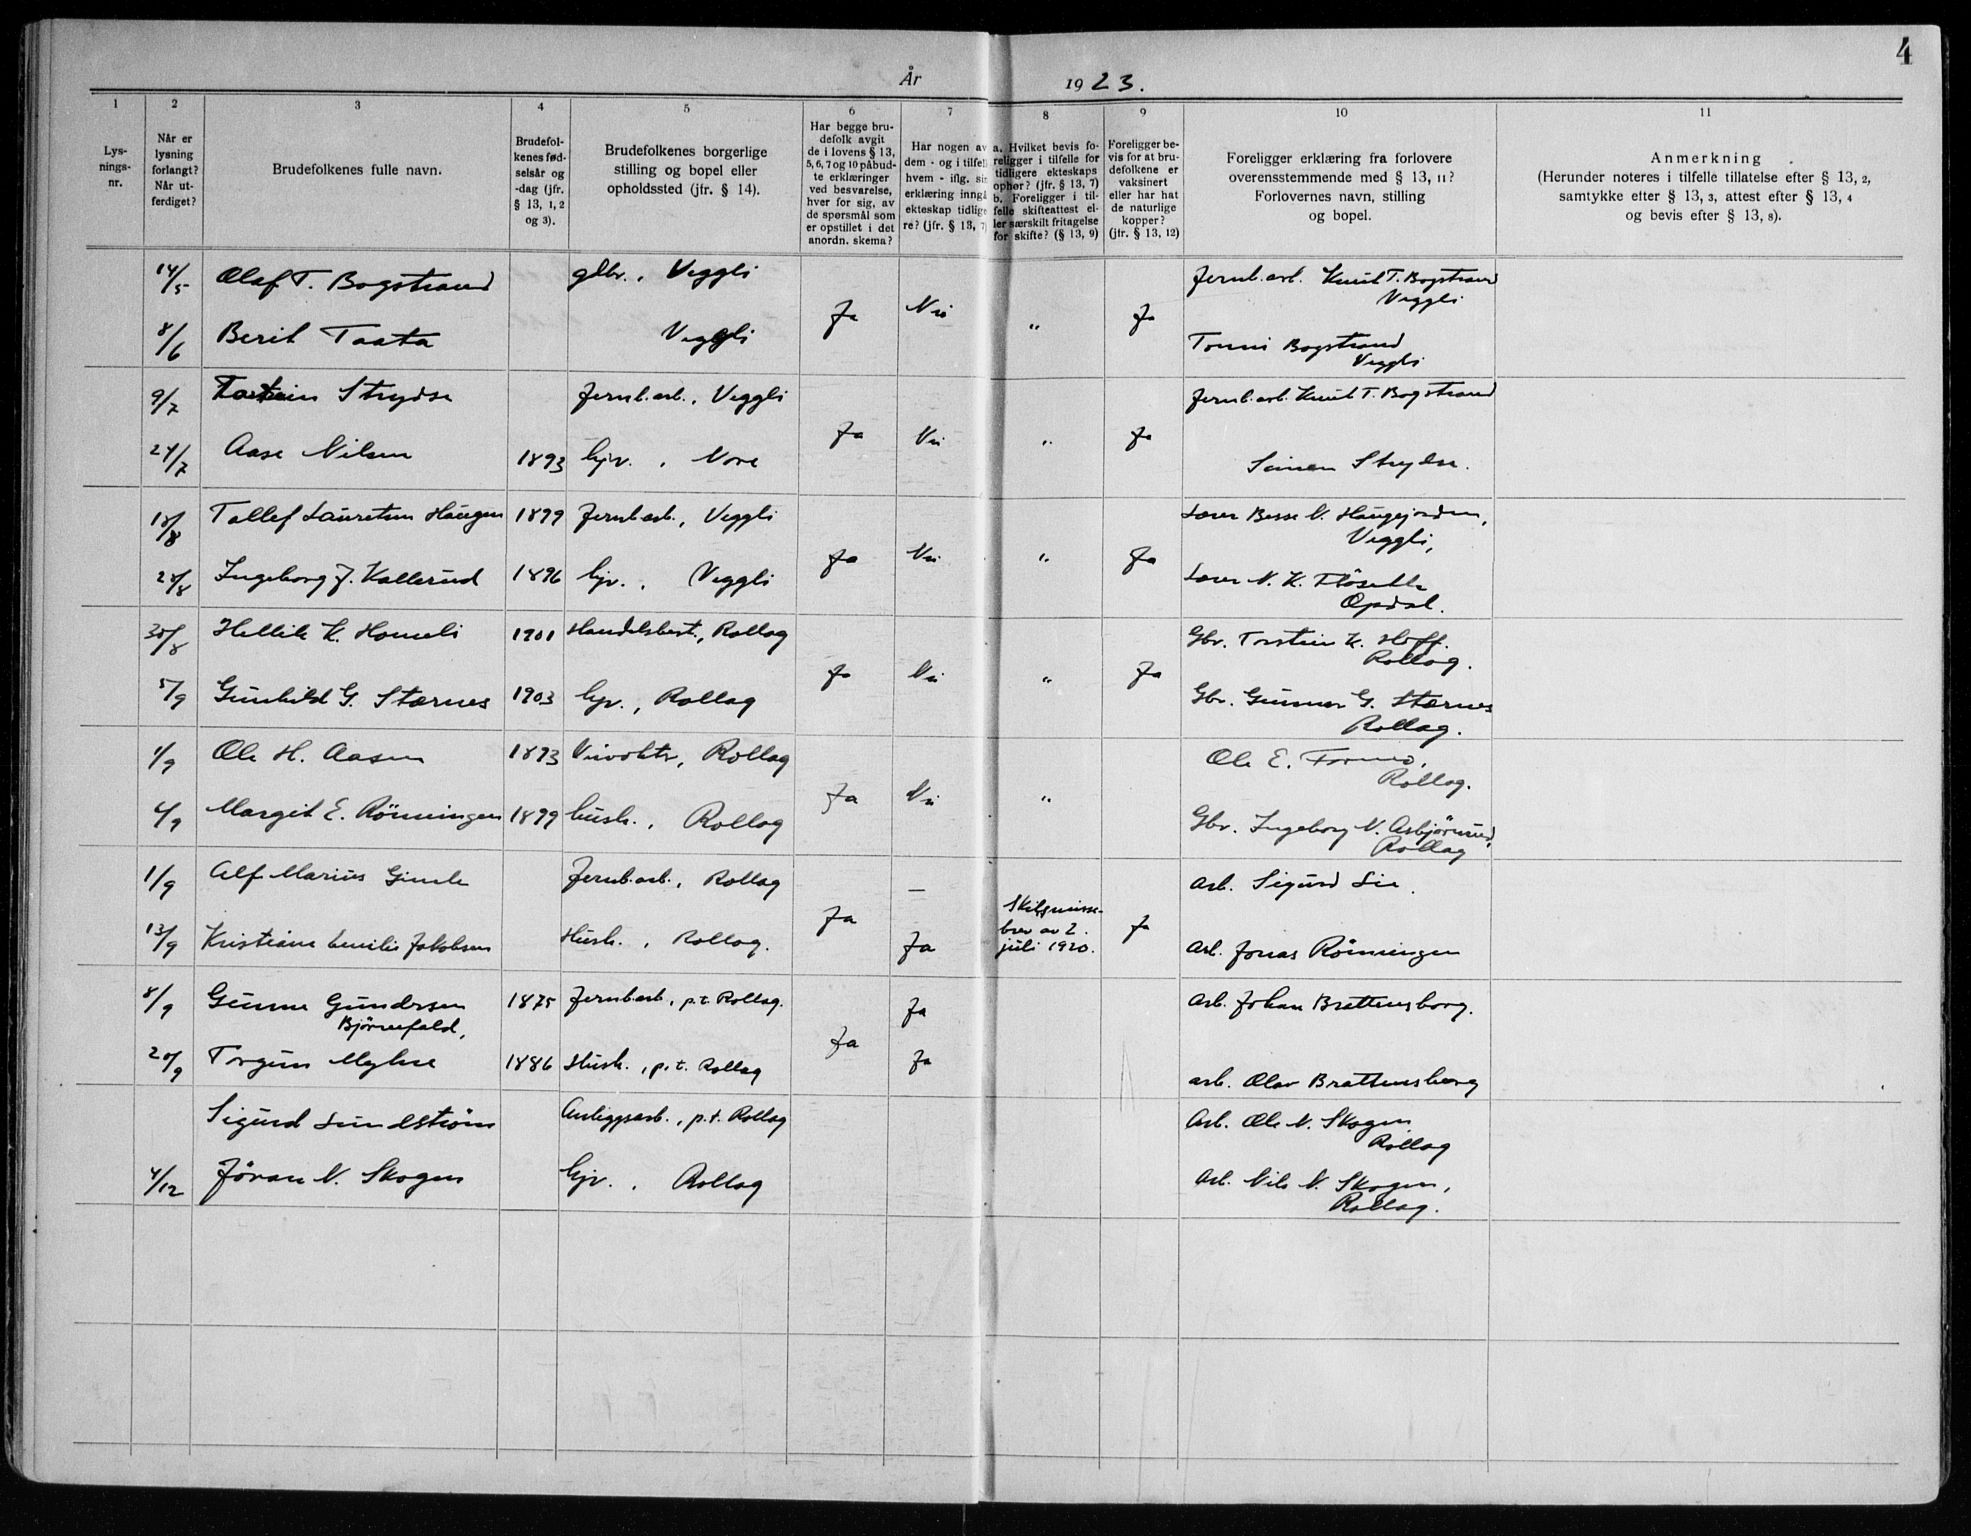 4
År 1923.
1 2 3 4 5 6 7 8 9 10 11
Lys-
nings-
nr.
Når er
lysning
forlangt?
Når ut-
ferdiget?
Brudefolkenes fulle navn.
Brudefol-
kenes fød-
selsår og
-dag (jfr.
§ 13, 1, 2
og 3).
Brudefolkenes borgerlige
stilling og bopel eller
opholdssted (jfr. § 14).
Har begge bru-
defolk avgit
de i lovens § 13,
5, 6, 7 og 10 påbud-
te erklæringer
ved besvarelse,
hver for sig, av
de spørsmål som
er opstillet i det
anordn. skema?
Har nogen av
dem - og i tilfel
hvem - iflg. sin
erklæring inngå
ekteskap tidlige
re? (jfr. § 13, 7
a. Hvilket bevis fo-
religger i tilfelle for
tidligere ekteskaps
ophør? (jfr. § 13, 7)
b. Foreligger i til-
felle skifteattest el-
ler særskilt fritagelse
for skifte? (§ 13, 9)
Foreligger be-
vis for at bru-
defolkene er
vaksinert
eller har hat
de naturlige
kopper?
(jfr. § 13, 12)
Foreligger erklæring fra forlovere
overensstemmende med § 13, 11?
Forlovernes navn, stilling
og bopel.
Anmerkning
(Herunder noteres i tilfelle tillatelse efter § 13, 2,
samtykke efter § 13, 3, attest efter § 13, 4
og bevis efter § 13, 8).
14/5 Olaf T. Bogstrand gbr., Veggli Jernb.arb. Knut T. Bogstrand
Veggli
Ja Nei " Ja
8/6 Berit Taata Veggli Tonni Bogstrand
Veggli
9/7 Strydse Jernb.arb., Veggli Jernb.arb. Knut T. Bogstrand
Ja Nei " Ja
24/7 Aase Nilsen 1893 hjv., Nore Simen Strydse.
18/8 Tollef Lauretsen Haugen 1899 Jernb.arb., Veggli Lærer Besse N. Haugejorden,
Veggli,
Ja Nei " Ja
28/8 Ingeborg J. Kallerud 1896 hjv., Veggli Lærer N. K. Fløsette
Opdal.
30/8 Hellik K. Homeli 1901 Handelsbest., Rollag Gbr. Torstein K. Hoff.
Rollag.
Ja Nei " Ja
5/9 Gunhild G. Stærnes 1903 hjv., Rollag Gbr. Gunnar G. Stærnes
Rollag.
1/9 Ole H. Aasen 1893 Rollag Ole E. Formo,
Rollag.
Ja Nei "
4/9 Margit E. Rönningen 1899 hush., Rollag Gbr. Ingeborg N. Asbjörnrud,
Rollag
1/9 Alf Marius Gimle Jernb.arb., Rollag — Arb. Sigurd Lie.
Ja Skilsmisse-
brev av 2.
juli 1920. Ja
13/9 Kristiane Emilie Jakobsen Hush., Rollag. Ja Arb. Jonas Rönningen
8/9 Gunnar Gundersen 1875 Jernb.arb., p.t. Rollag. Ja Arb. Johan Brattensborg.
Björnefald,
Ja
20/9 Torgun Myhre 1886 Hush., p.t. Rollag Ja arb. Olav Brattensborg
Sigurd Lundström Anleggsarb., p.t. Rollag Arb. Ole N. Skogen
Rollag
4/12 Jöran N. Skogen hjv., Rollag Arb. Nils N. Skogen,
Rollag.